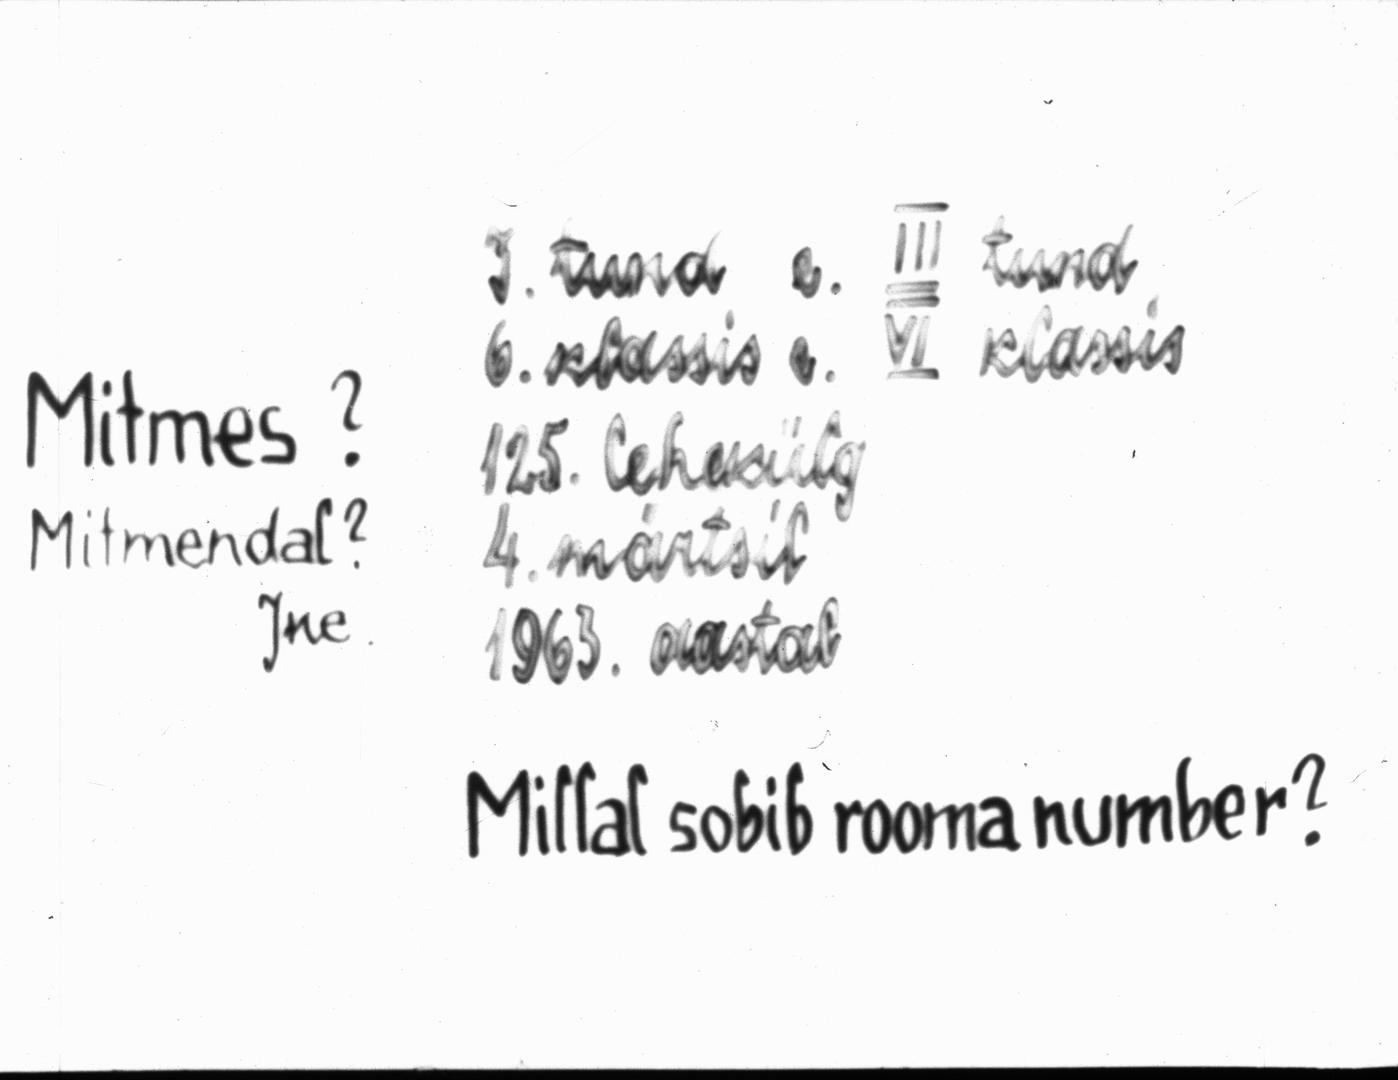 3. tund e. III tund
6. klassis e. VI klassis
Mitmes?
125. lehekülg
Mitmendal?
4. märtsil
Jne.
1963. aastal
Millal sobib rooma number?